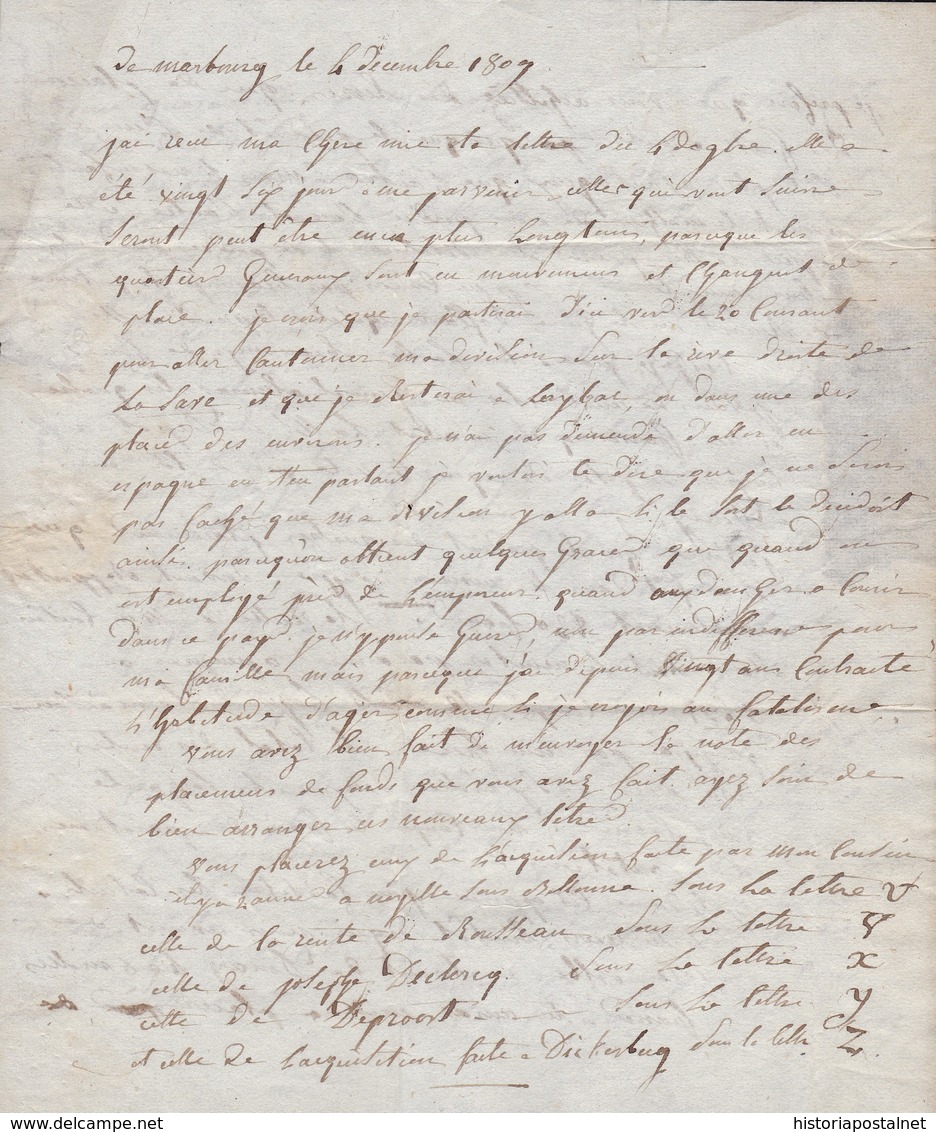 de marbourg le 4 decembre 1809
jai recu ma chere mie ta lettre du 4 elle a
été vingt six jour a me parvenir celles qui vont suivre
seront peut être encor plus longtems, parceque les
quartier generaux sont en mouvemens et changent de
place. je crois que je partirai d'ici verd le 20 courant
pour aller cantonner ma division sur la rive droite de
La Save et que je resterai a laybac, ou dans une des
place des environs. je n'ai pas demandé d'aller en
espagne en t'en parlant je voulois te dire que je ne serois
pas faché que ma division y alla si le sort le decidoit
ainsi. parcequ'on obtient quelques graces que quand on
est employé près de L'empereur. quand aux dangers a courir
dans ce payd je n'y pense guere, non par indifference pour
ma famille mais parceque j'ai depuis vingt ans contracté
L'habitude d'agir comme si je croyois au fatalisme
vous avez bien fait de m'envoyer la note des
placemens de fonds que vous avez fait. ayez soin de
bien arranger ces nouveaux titres.
vous placerez ceux de l'acquisition faite par mon cousin
il y a 2 année a noyelle sous Bellonne. sous La lettre V
celle de la rente de Rousseau sous la lettre V
celle de josephe Declercq. sous la lettre X
celle de Deproost sous la lettre y
et celle de l'acquisition faite a Dickebucq sous la lettre Z.
historiapostalnet